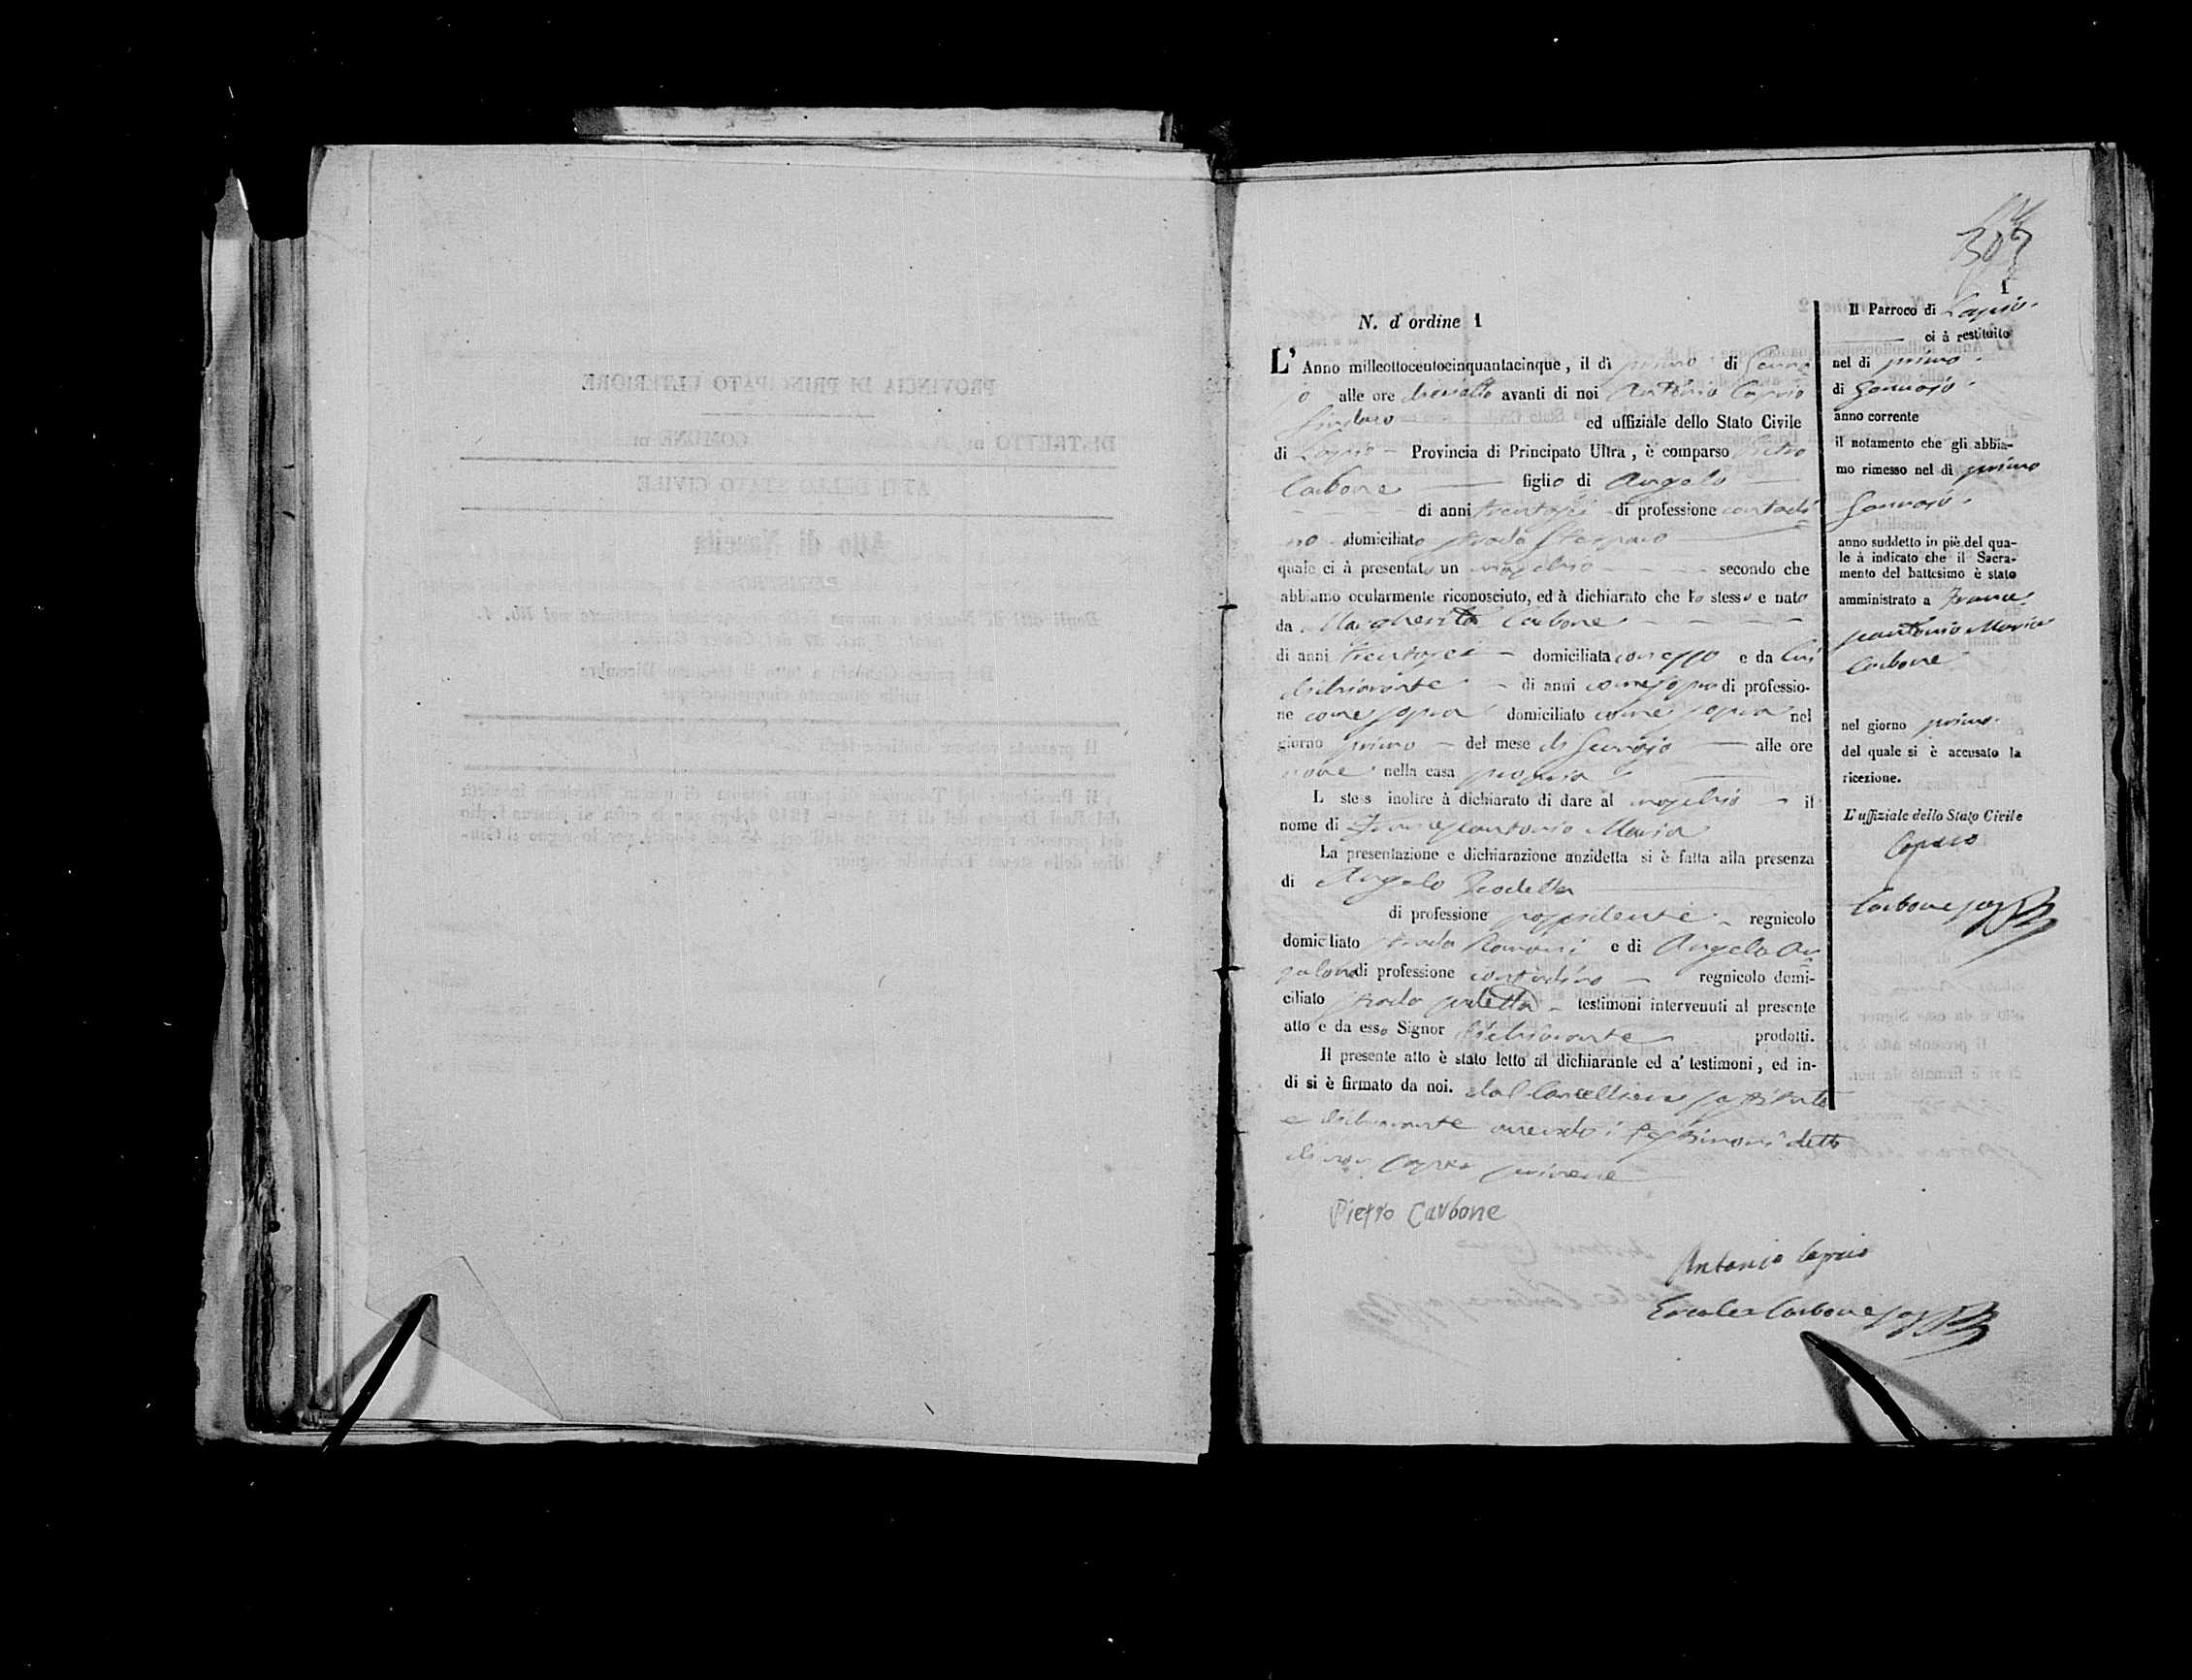 307
1
N. d'ordine 1
L'Anno milleottocentocinquantacinque, il dì primo di Genna
jo alle ore diciotto avanti di noi Antonio Caprio
Sindaco ed uffiziale dello Stato Civile
di Lapio Provincia di Principato Ultra, è comparso Pietro
Carbone figlio di Angelo
di anni trentasei di professione contadi
no domiciliato strada
quale ci à presentato un maschio secondo che
abbiamo ocularmente riconosciuto, ed à dichiarato che lo stesso e nato
da Margherita Carbone
di anni trentasei domiciliata con esso e da lui
dichiarante di anni come sopra di professio-
ne come sopra domiciliato come sopra nel
giorno primo del mese di Gennajo alle ore
nove nella casa propria
L stess inoltre à dichiarato di dare al maschio il
nome di Francescantonio Maria
La presentazione e dichiarazione anzidetta si è fatta alla presenza
di Angelo
di professione possidente regnicolo
domiciliato strada Romani e di Angelo
di professione contadino regnicolo domi-
ciliato strada testimoni intervenuti al presente
atto e da esso Signor dichiarante prodotti.
Il presente atto è stato letto al dichiarante ed a' testimoni, ed in-
di si è firmato da noi. dal Cancelliere sostituto
e dichiarante avendo i testimoni detto
di non sapere scrivere
Pietro Carbone
Antonio Caprio
Ercole Carbone
Il Parroco di Lapio
ci à restituito
nel dì primo
di Gennajo
anno corrente
il notamento che gli abbia-
mo rimesso nel dì primo
Gennajo
anno suddetto in piè del qua-
le à indicato che il Sacra-
mento del battesimo è stato
amministrato a France
scantonio Maria
Carbone
nel giorno primo
del quale si è accusato la
ricezione.
L'uffiziale dello Stato Civile
Caprio
Carbone